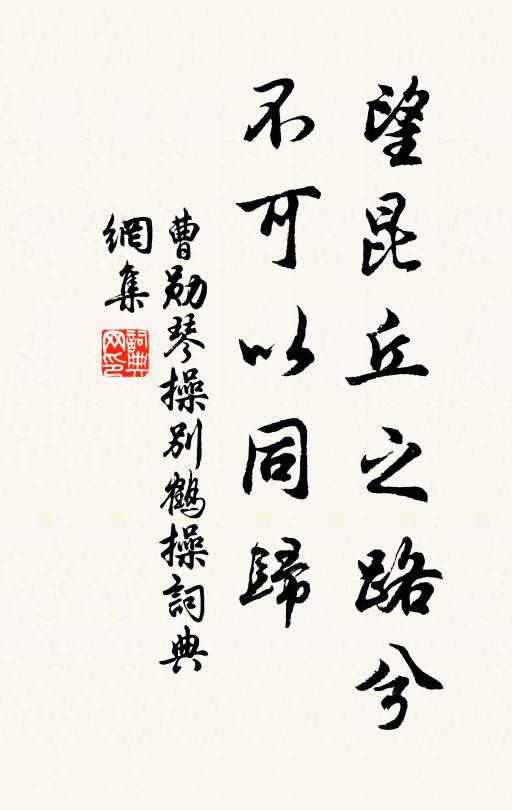 望昆丘之路兮
不可以同歸
曹勛琴操別鶴操詞典
網集
詞典
网印